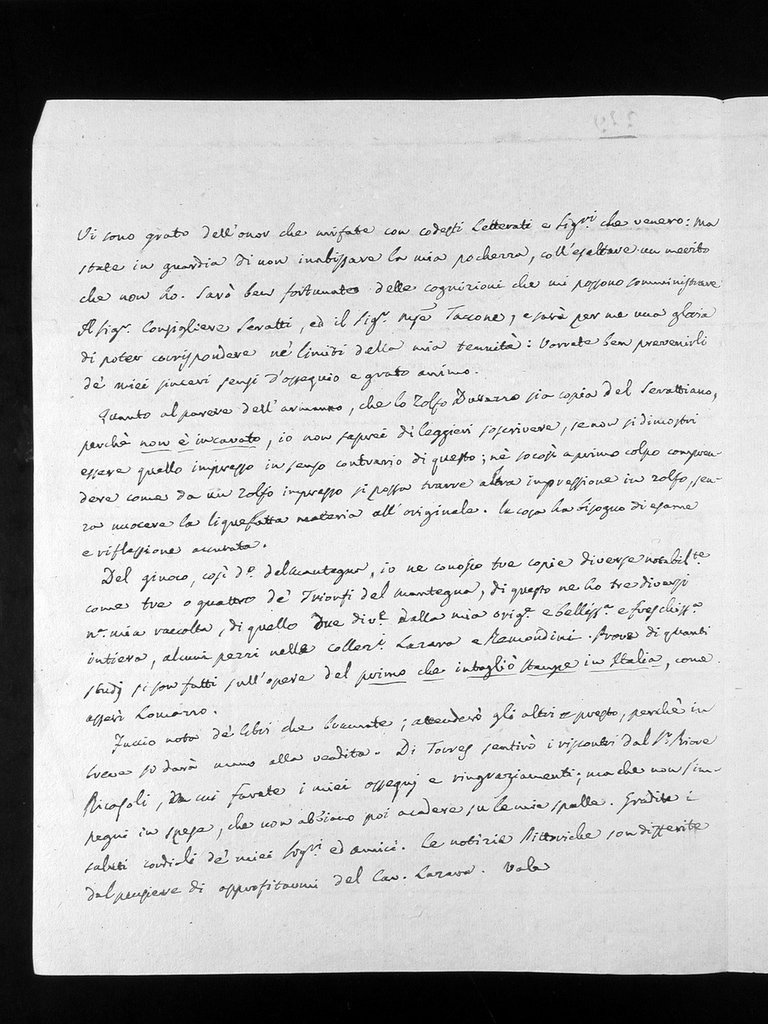 229
Vi sono grato dell'onor che mi fate con codesti Letterati e Sig.ri che venero: ma
state in guardia di non inabissare la mia pochezza, coll'esaltare un merito
che non ho. Sarò ben fortunato delle cognizioni che mi possono somministrare
il Sig.r Consigliere Seratti, ed il Sig.r Taccone, e sarà per me una gloria
di poter corrispondere ne' limiti della mia tenuità: Vorrate ben prevenirli
de' miei sinceri sensi d'ossequio e grato animo.
Quanto al parere dell'armanno, che lo Zolfo Durazzo sia copia del Serattiano,
perchè non è incavato, io non saprei di leggieri soscrivere, se non si dimostri
essere quello impresso in senso contrario di questo; nè so così a primo colpo compren-
dere come da un Zolfo impresso si possa trarre altra impressione in zolfo, sen-
za nuocere la liquefatta materia all'originale. la cosa ha bisogno di esame
e riflessione accurata.
Del giuoco, così d.o del Mantegna, io ne conosco tre copie diverse notabil.te
come tre o quattro de' Trionfi del Mantegna, di questo ne ho tre diversi
n.a mia raccolta, di quello due div.e dalla mia orig.e e belliss.a e freschiss.a
intiera, alcuni pezzi nelle collez.i Lazara e Remondini. Prova di quanti
studj si son fatti sull'opere del primo che intagliò stampe in Italia, come
asserì Lomazzo.
nota de' libri che bramate; attenderò gli altri e presto, perchè in
breve si darà mano alla vendita. Di Torres sentirò i riscontri dal S.r Piore
Ricasoli, da cui farete i miei ossequj e ringraziamenti; ma che non s'im-
pegni in spesa, che non abbiano poi a cadere su le mie spalle. Gradite i
saluti cordiali de' miei Sig.ri ed amici. Le notizie Pittoriche son differite
dal pensiere di approfitarmi del Cav. Lazara. Vale